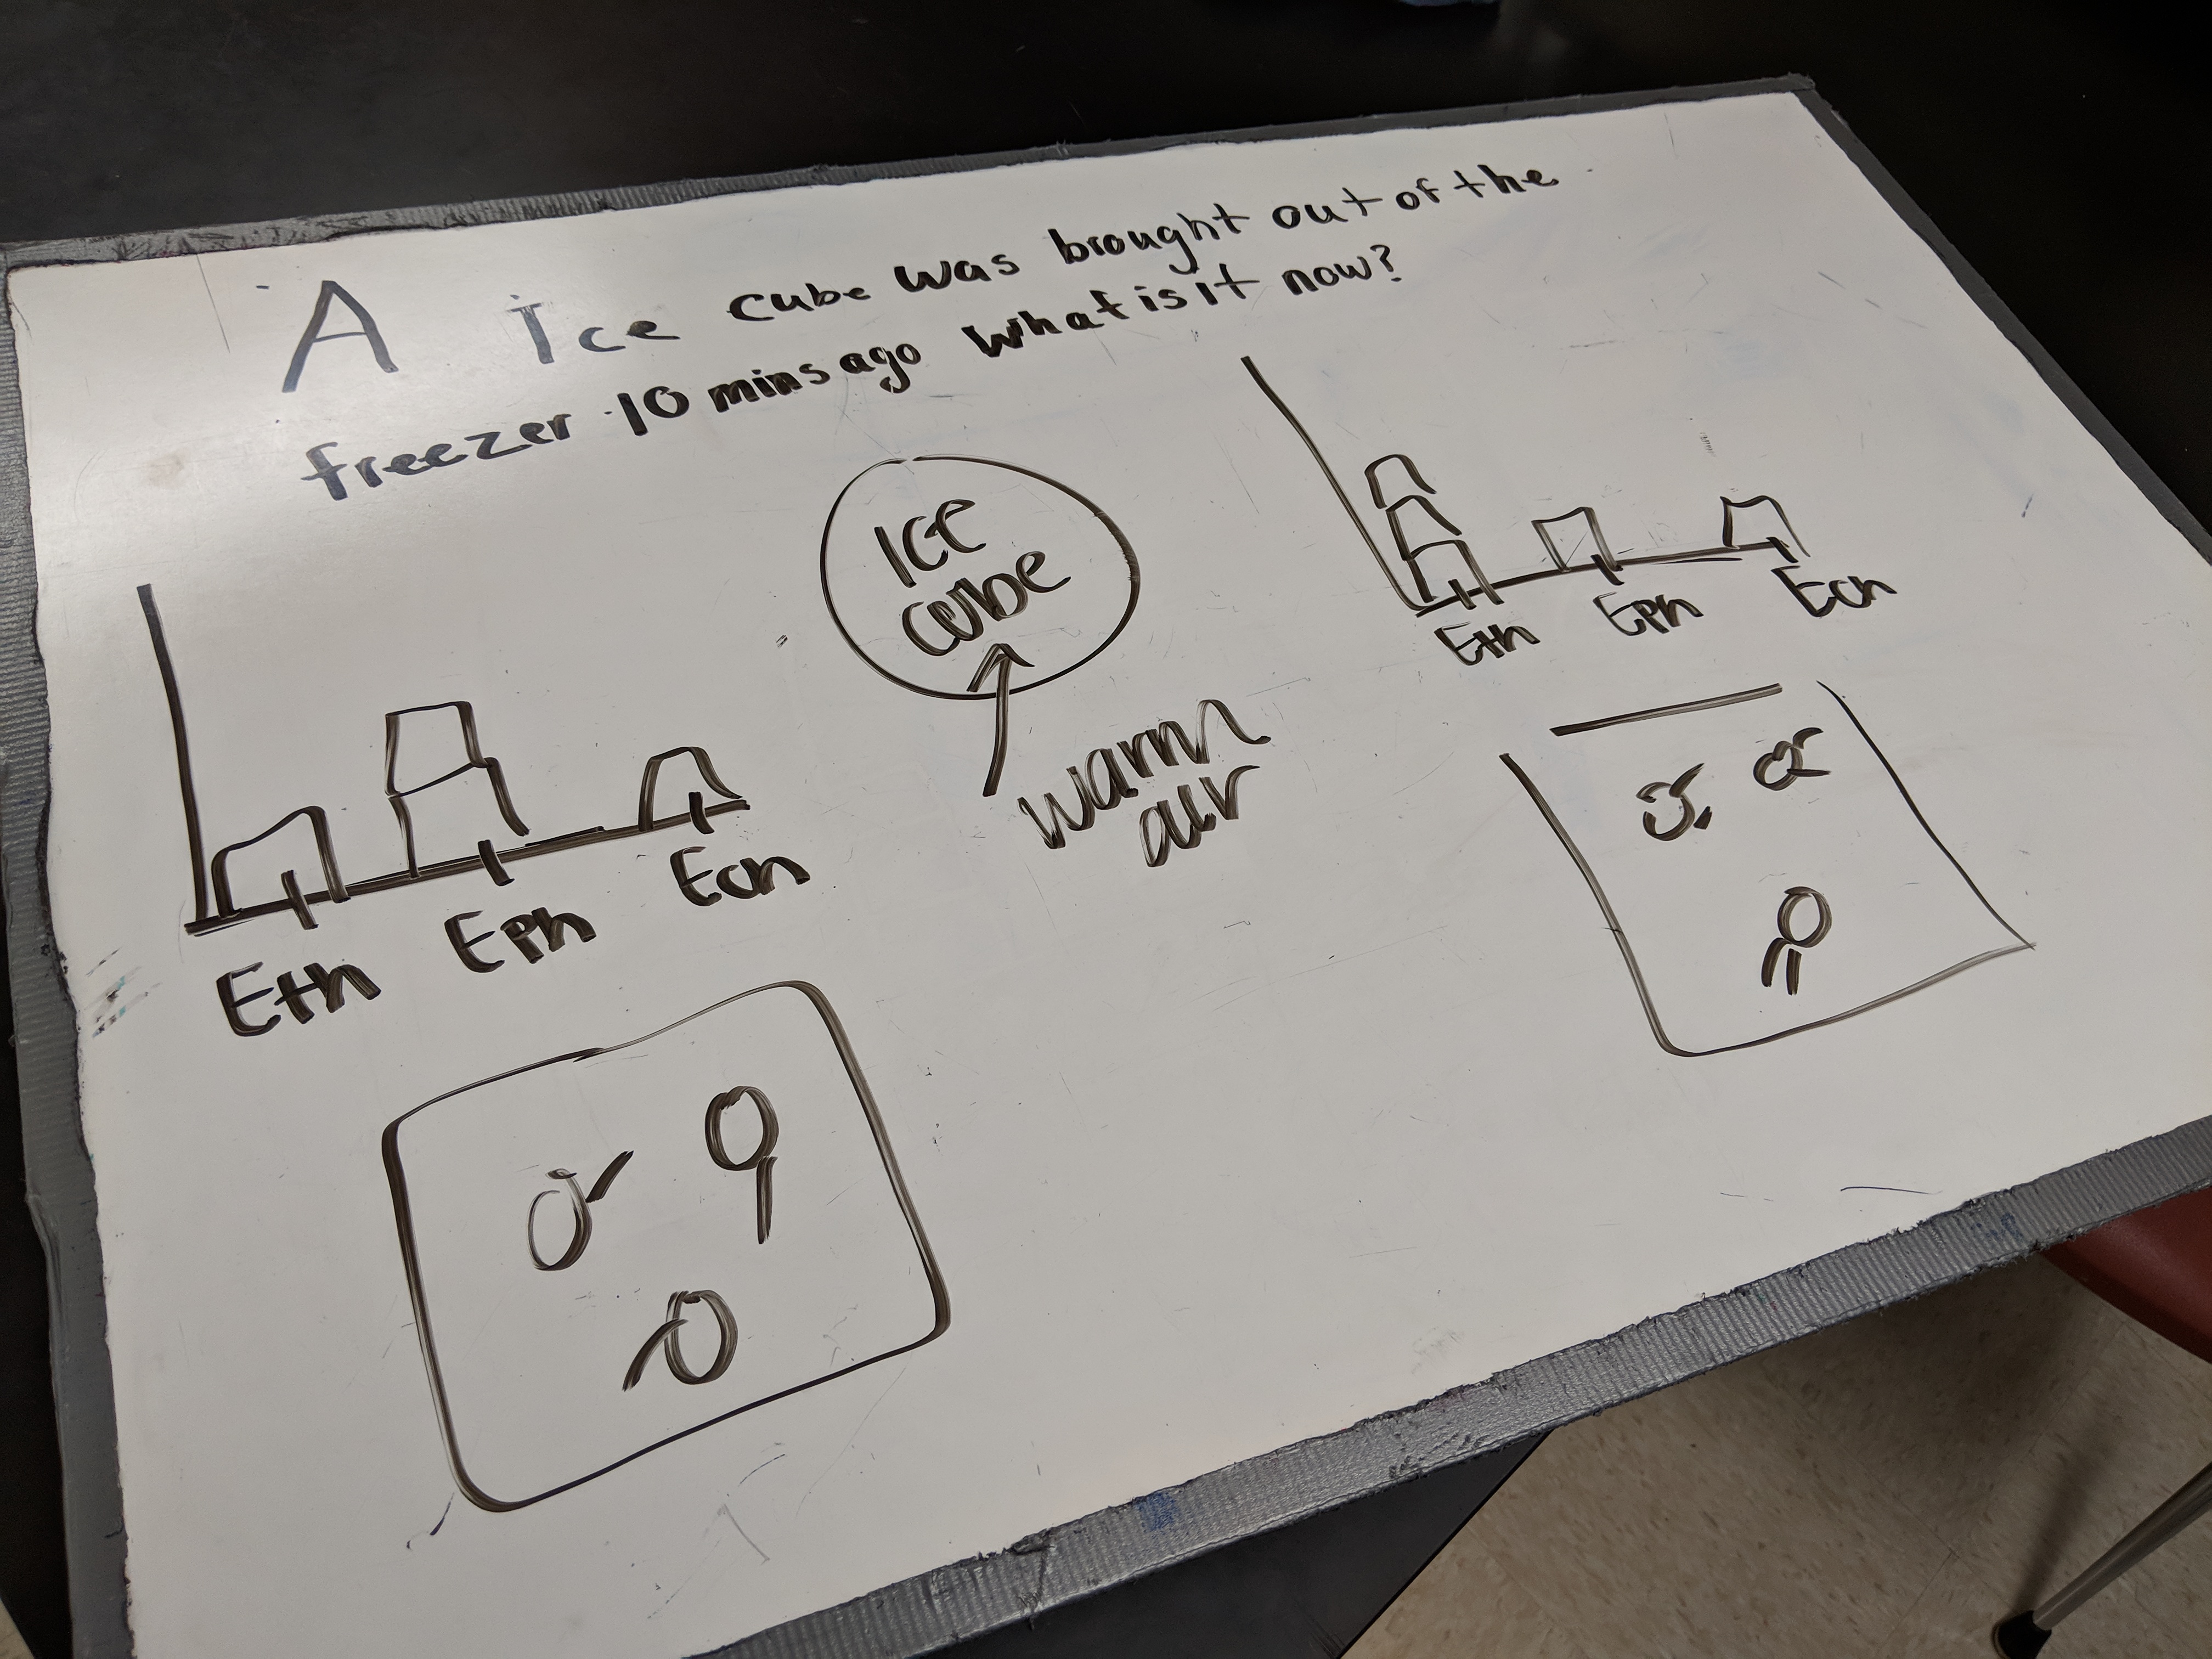 A Ice cube was brought out of the
freezer 10 mins ago what is it now?
Ice
cube
warm
air
Eth Eph Ech
Eth Eph Ech